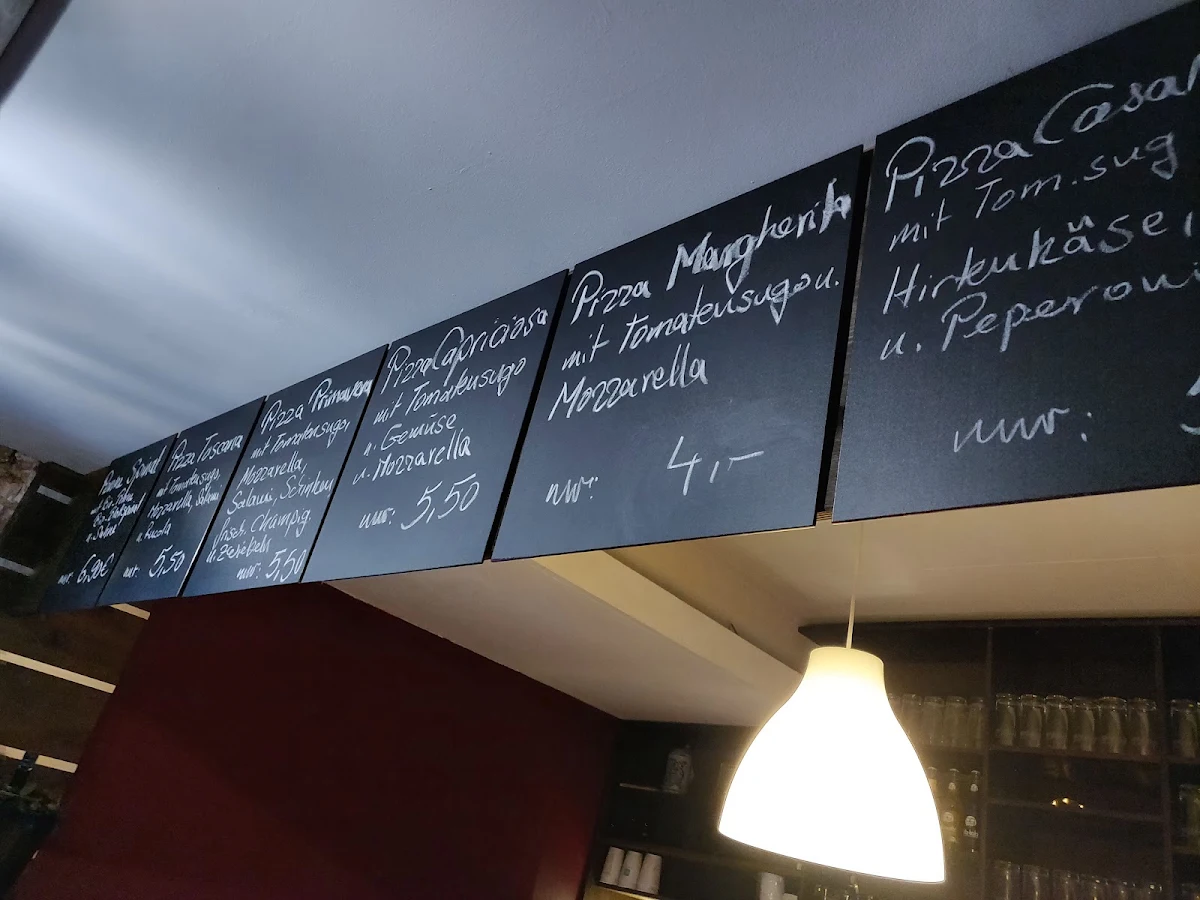 mit
u.
nur: 6,90€
Pizza Toscana
mit Tomatensugo,
Mozzarella, Salami
u. Rucola
nur: 5,50
Pizza Primavera
mit Tomatensugo,
Mozzarella,
Salami, Schinken
frisch. Champig.
u. Zwiebeln
nur: 5,50
Pizza Capriciosa
mit Tomatensugo
u. Gemüse
u. Mozzarella
nur: 5,50
Pizza Margherita
mit Tomatensugo u.
Mozzarella
nur: 4,-
Pizza Casal
mit Tom.sug
Hirtenkäse,
u. Peperoni
nur: